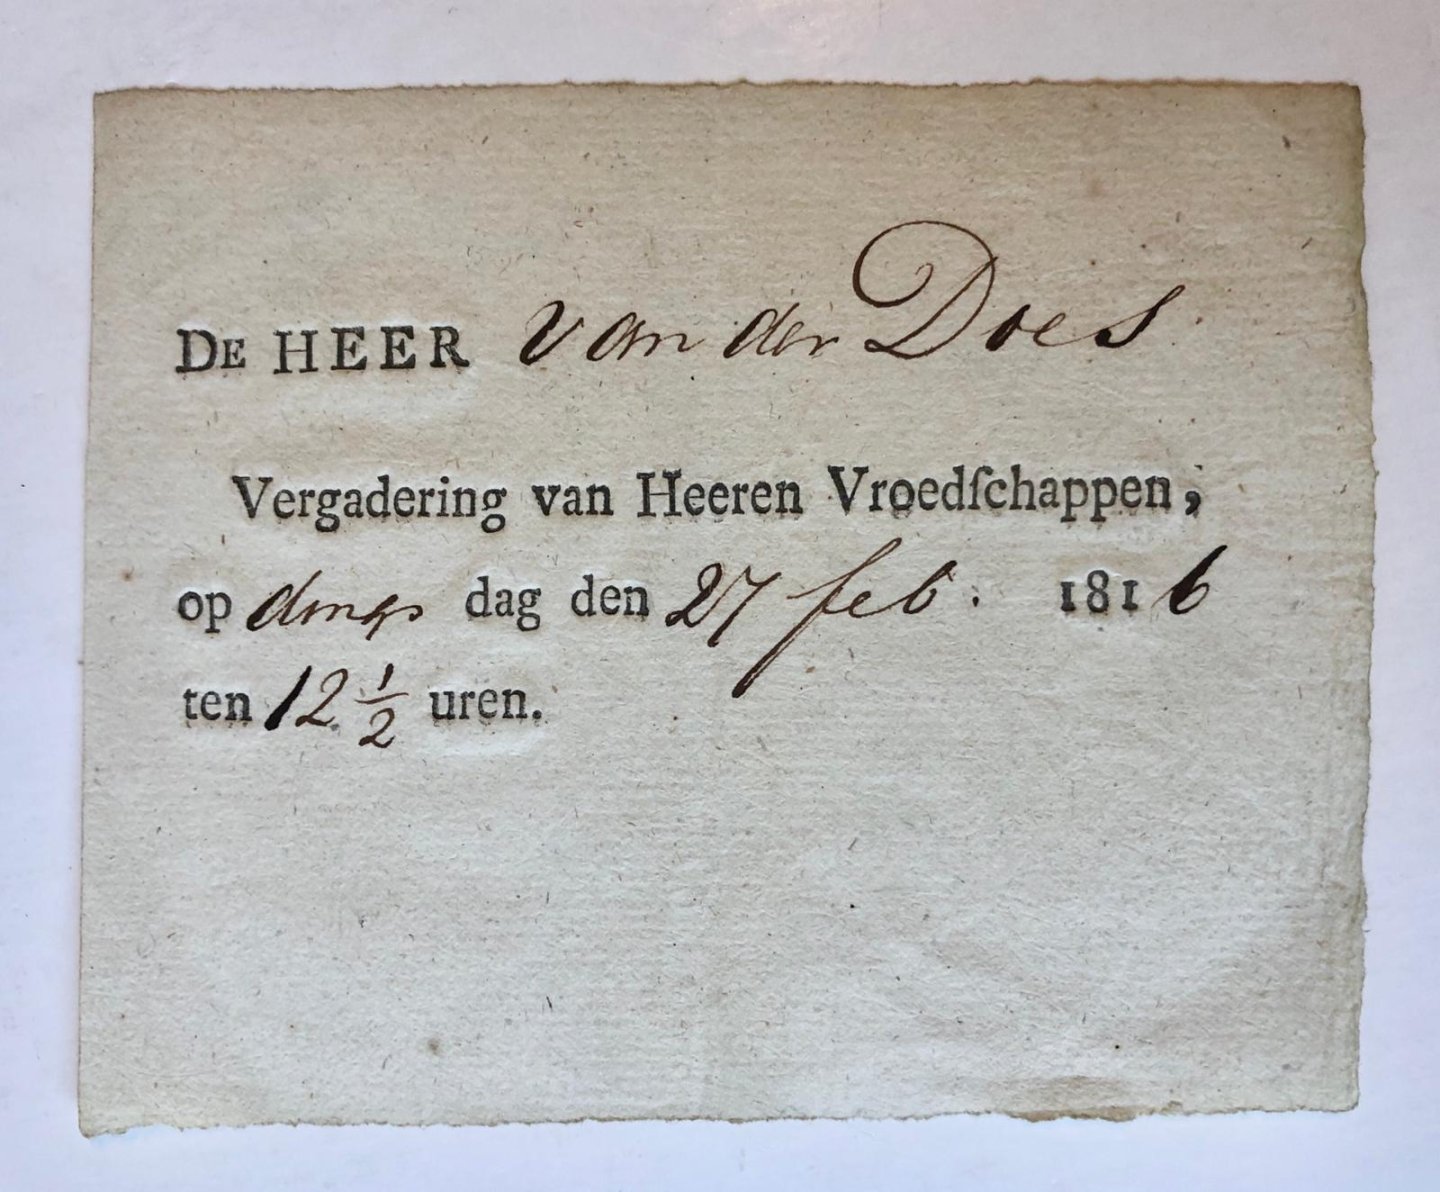 DE HEER van der Does
Vergadering van Heeren Vroedſchappen,
op dings dag den 27 feb. 1816
ten 12 1/2 uren.